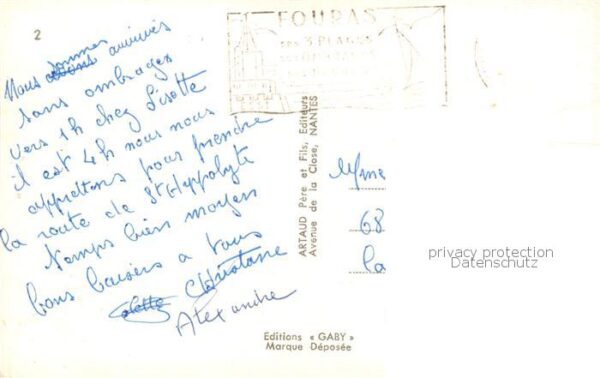 2
Nous sommes arrivés
sans ombrages
vers 1h chez Lisette
il est 4h nous nous
apprettons pour prendre
la route de St Hyppolyte
Temps bien moyen
bons baisers a tous
Colette Christiane
Alexandre
FOURAS
SES 3 PLAGES
ARTAUD Père et Fils, Editeurs
Avenue de la Close, NANTES
Mme
68
La
privacy protection
Datenschutz
Editions « GABY »
Marque Déposée